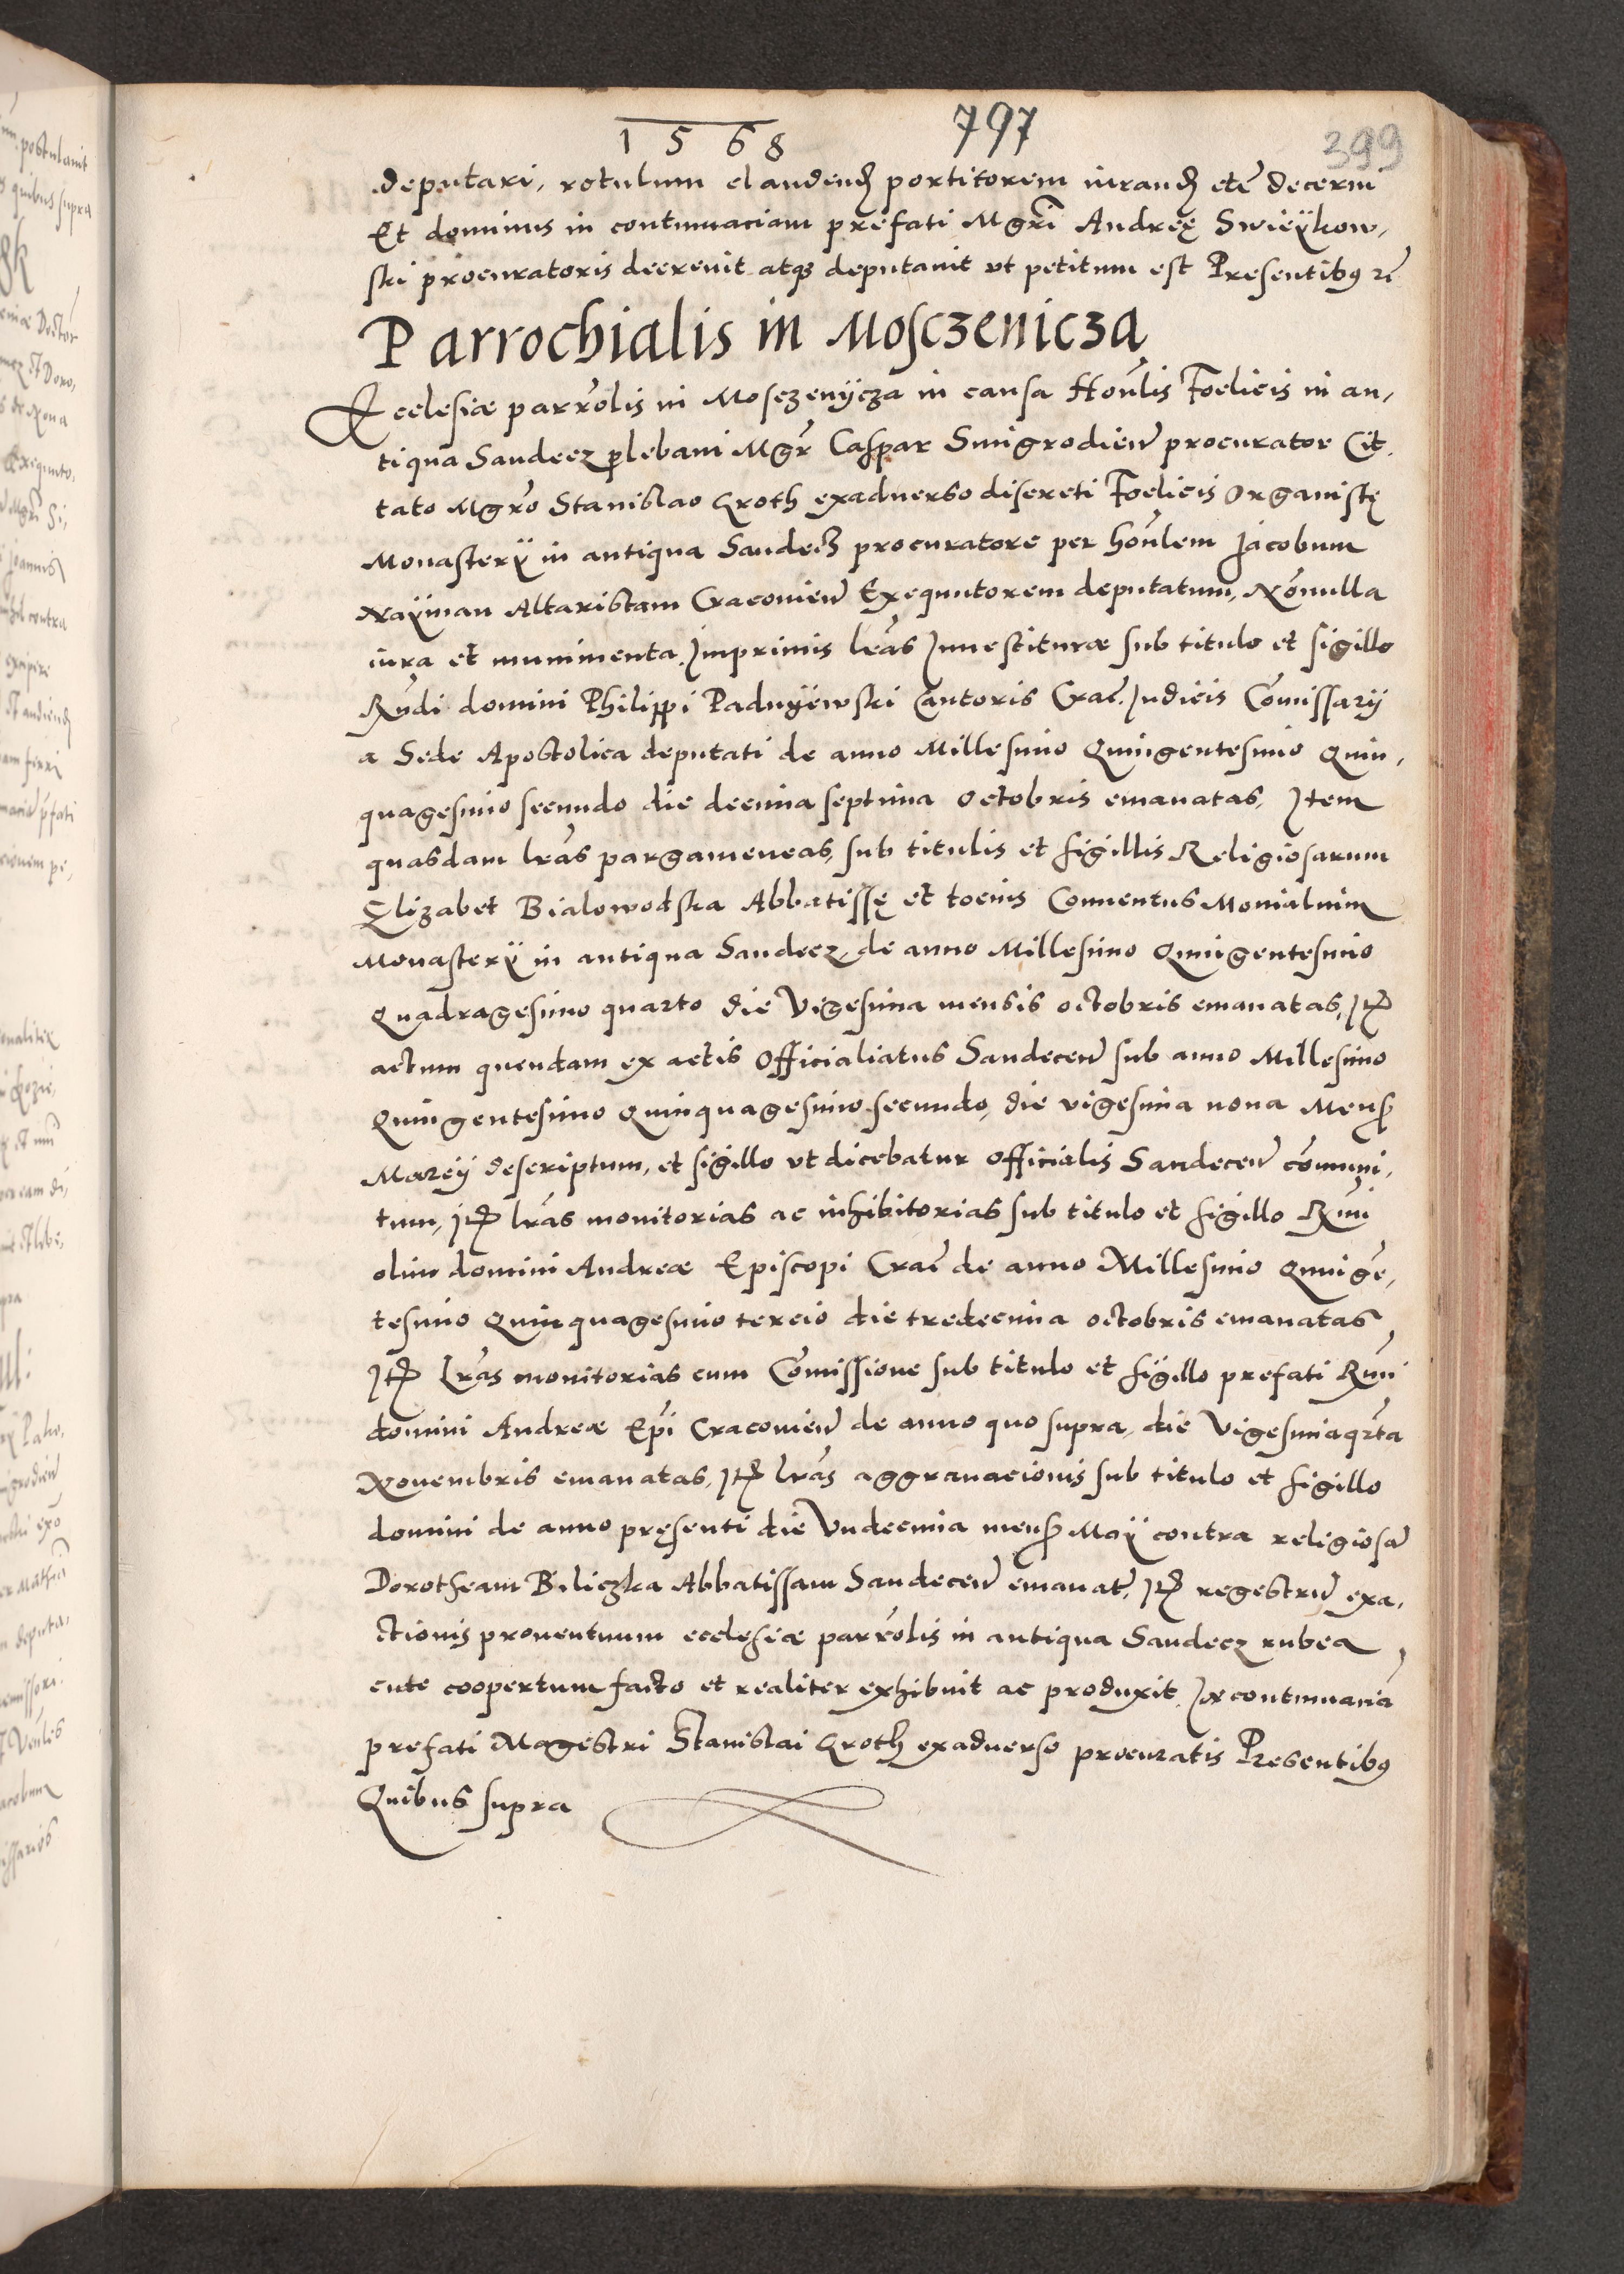 1568 797 399
deputari, rotulum claudend portitorem iurand etc̄ decerni
Et dominus in contumaciam prefati Mgr̄i Andreę Swieÿkow,
ski procuratoris decrevit atqz deputavit ut petitum est Presentibꝰ
Parrochialis in Mosczenicza
Ecclesiæ parro̅lis in Mosczenÿcza in causa Hon̄lis Foelicis in an,
tiqua Sandecz plebani Mgr̄ Caspar Smigrodien̄ procurator Cit,
tato Mgr̄o Stanislao Groth exadverso discreti Foelicis Organistę
Monasterÿ in antiqua Sandecz procuratore per hon̄lem Jacobum
Naÿman Altaristam Cracovien̄ Exequutorem deputatum, No̅nulla
iura et munimenta. Imprimis lr̄as Investituræ sub titulo et sigillo
Rn̄di domini Philippi Padnÿewski Cantoris Crac̄. Judicis Co̅missarÿ
a Sede Apostolica deputati de anno Millesimo Quingentesimo Quin,
quagesimo secundo die decima septima Octobris emanatas, Item
quasdam lr̄as pargameneas, sub titulis et sigillis Religiosarum
Elizabet Bialowodska Abbatissę et tocius Conventus Monialium
Monasterÿ in antiqua Sandecz, de anno Millesimo Quingentesimo
Quadragesimo quarto die Vigesima mensis octobris emanatas, Itꝫ
actum quendam ex actis Officialiatus Sandecen̄ sub anno Millesimo
Quingentesimo Quinquagesimo secundo, die vigesima nona Mens
Marcÿ descriptum, et sigillo ut dicebatur Officialis Sandecen̄ co̅muni,
tum, Itꝫ lr̄as monitorias ac inhibitorias sub titulo et sigillo Rm̄i
olim domini Andreæ Episcopi Crac̄ de anno Millesimo Quinge̅,
tesimo Quinquagesimo tercio die tredecima octobris emanatas
Itꝫ Lr̄as monitorias cum Co̅missione sub titulo et sigillo prefati Rm̄i
domini Andreæ Ep̄i Cracovien̄ de anno quo supra, die Vigesimaqr̄ta
Novembris emanatas, Itꝫ lr̄as aggravacionis sub titulo et sigillo
domini de anno pręsenti die Vndecima mens Maÿ contra religiosa̅
Dorotheam Biliczka Abbatissam Sandecen̄ emanat̄, Itꝫ regestru̅ exa,
ctionis proventuum ecclesiæ parro̅lis in antiqua Sandecz rubea
cute coopertum facto et realiter exhibuit ac produxit. In contumacia̅
prefati Magistri Stanislai Groth exadverso procuratis Presentibꝰ
Quibus supra